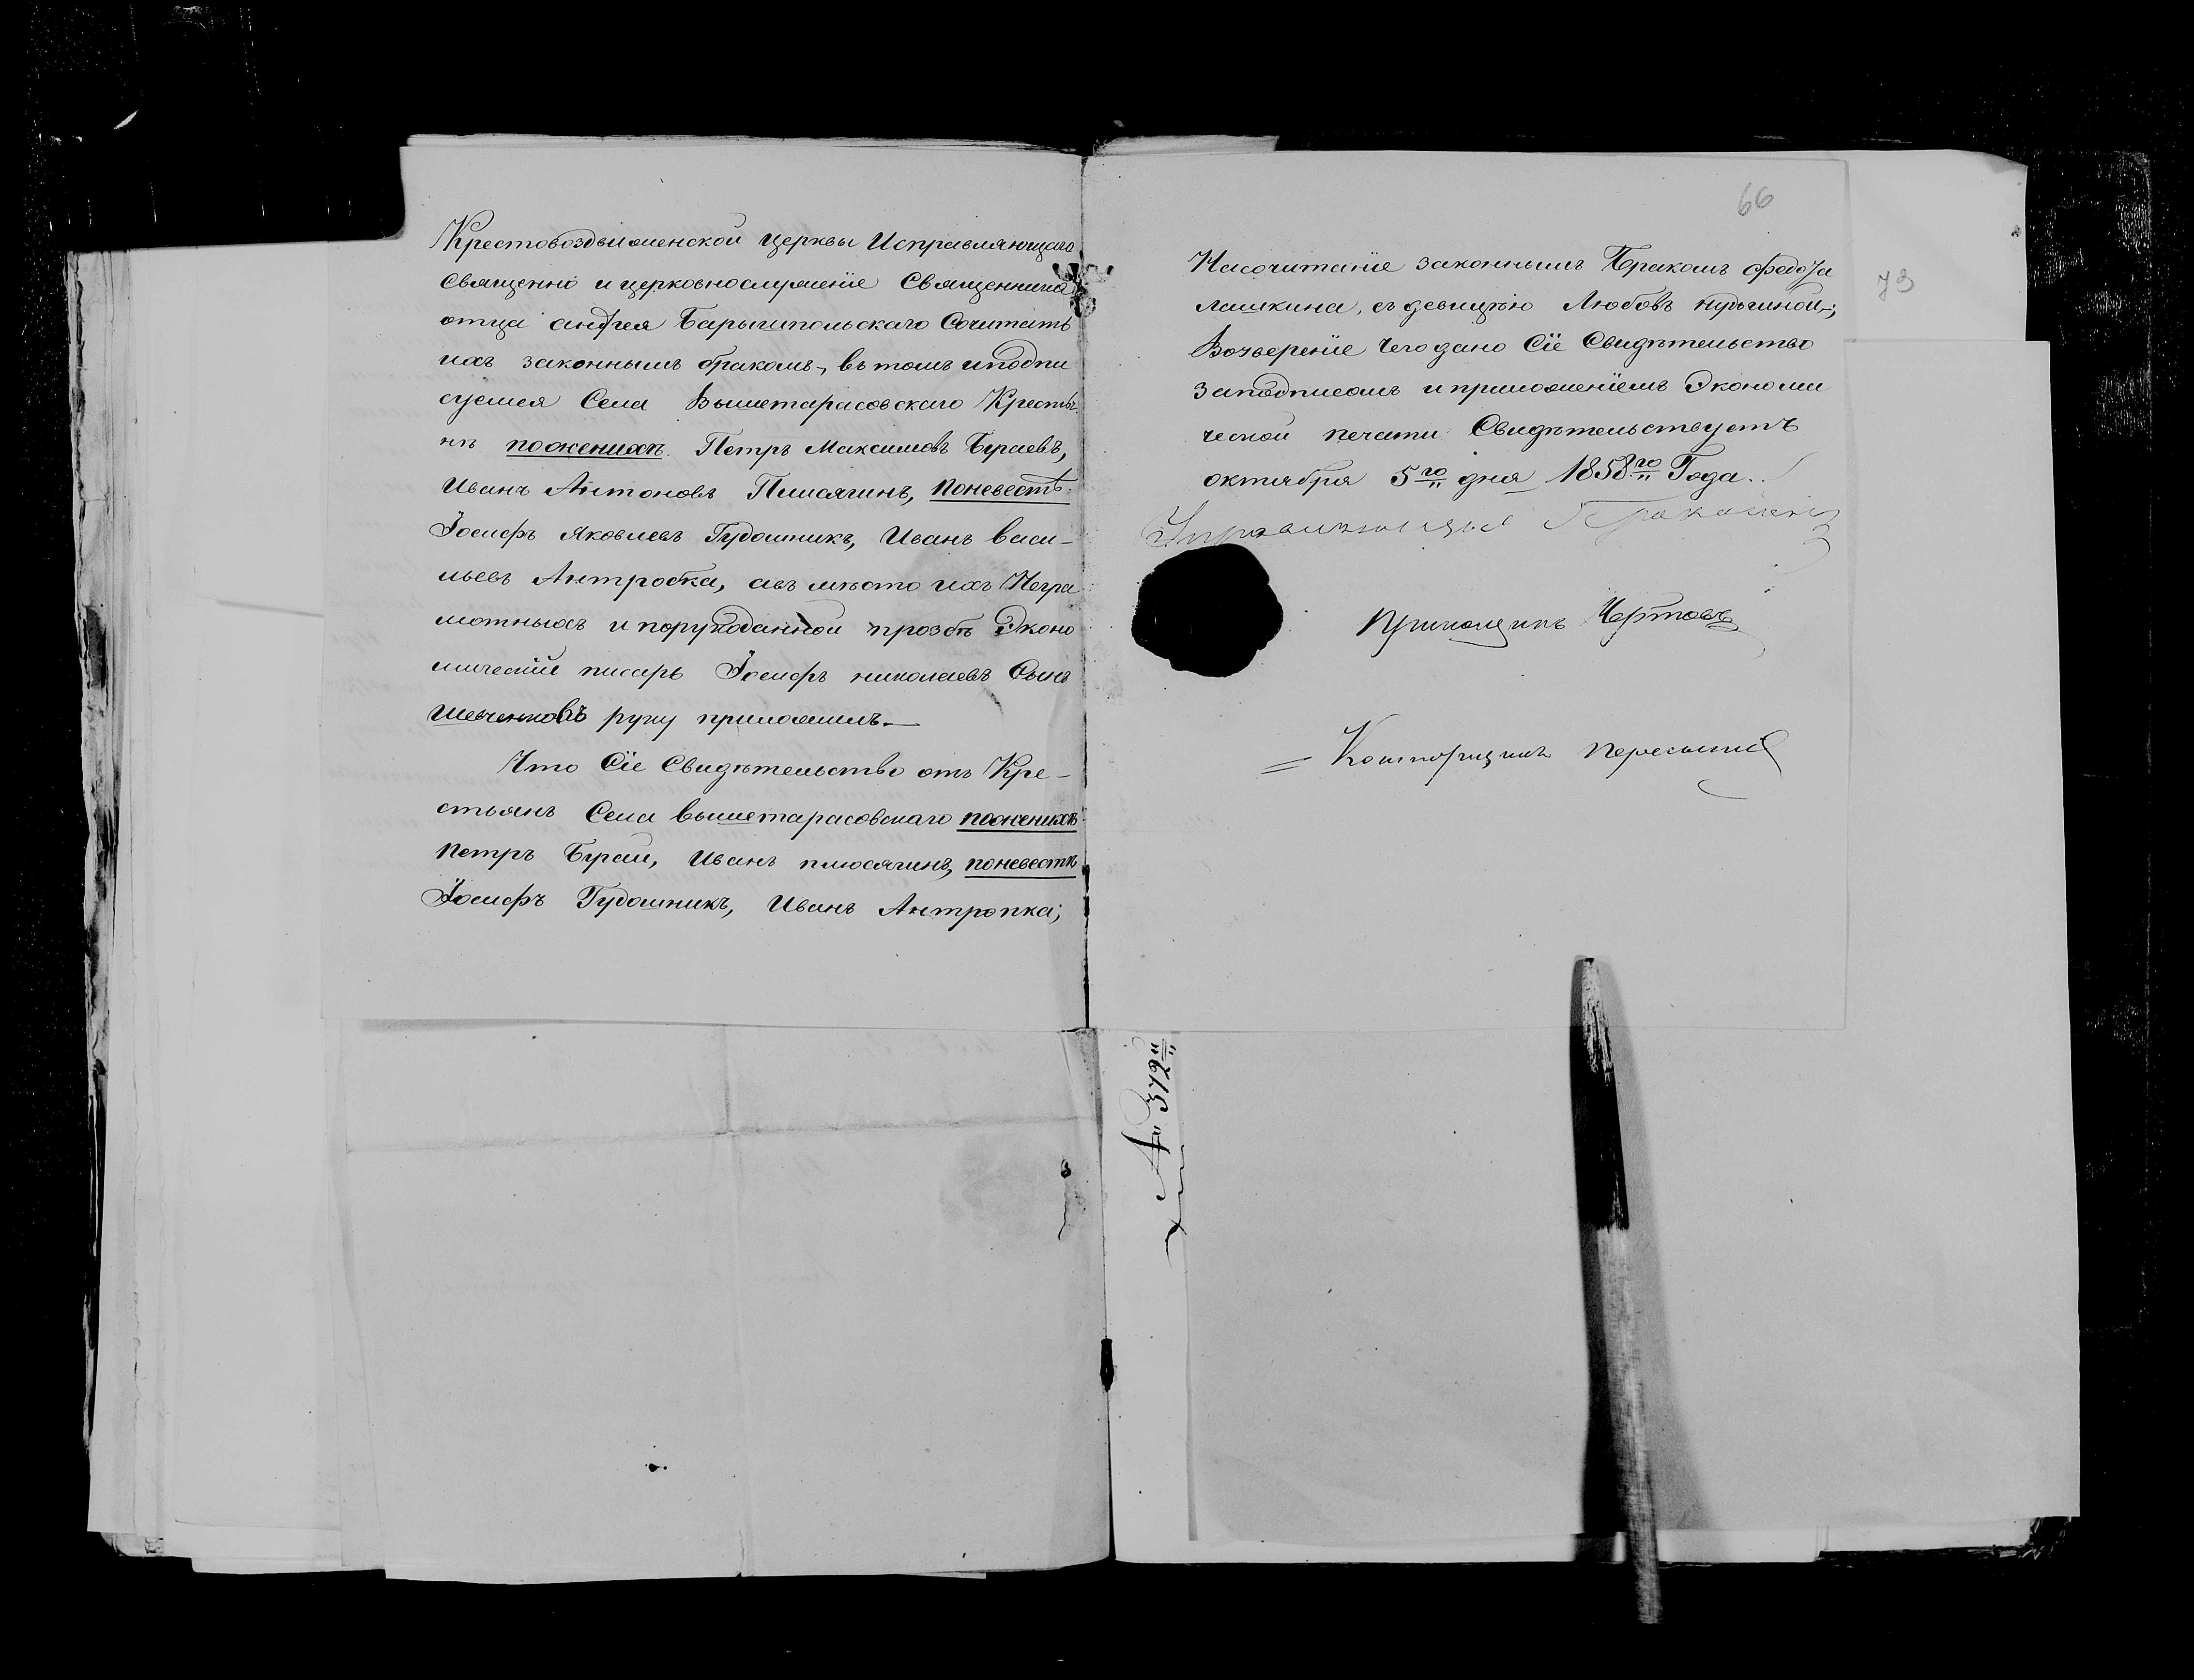 Крестовоздвиженской церквы Исправляющаго
священно и церковнослужение Священника
отца андрея Барышпольскаго Сочитать
ихъ законнымъ бракомъ, въ томъ иподпи
суемся Села Вышетарасовскаго Крестья-
нѣ поженихѣ Петръ Максимовъ Бураевъ,
Иванъ Антоновъ Плисягинъ, поневестѣ
Іосифъ Яковлевъ Гудошникъ, Иванъ васи-
льевъ Антропка, авъ мѣсто ихъ Негра
мотныхъ и порукоданной прозбѣ Эконо
мическій писарь Іосифъ николаевъ Сынъ
Шевченковъ руку приложилъ.
Что Сіе Свидѣтельство отъ Кре-
стьянъ Села вышетарасовскаго поженихѣ
Петръ Бурай, Иванъ плюсягинъ, поневестѣ
Іосифъ Гудошникъ, Иванъ Антропка,
66
Насочитаніе законнымъ Бракомъ федора
лашкина, съ девицѣю Любовъ
73
Возверение Чего дано Сіе Свидѣтельство
Заподписомъ и приложеніемъ Экономи
ческой печати Свидѣтельствуетъ
октября 5го дня 1858го Года.
Управляющий
Прикащикъ Чертовъ
Конторщикъ
№ 372